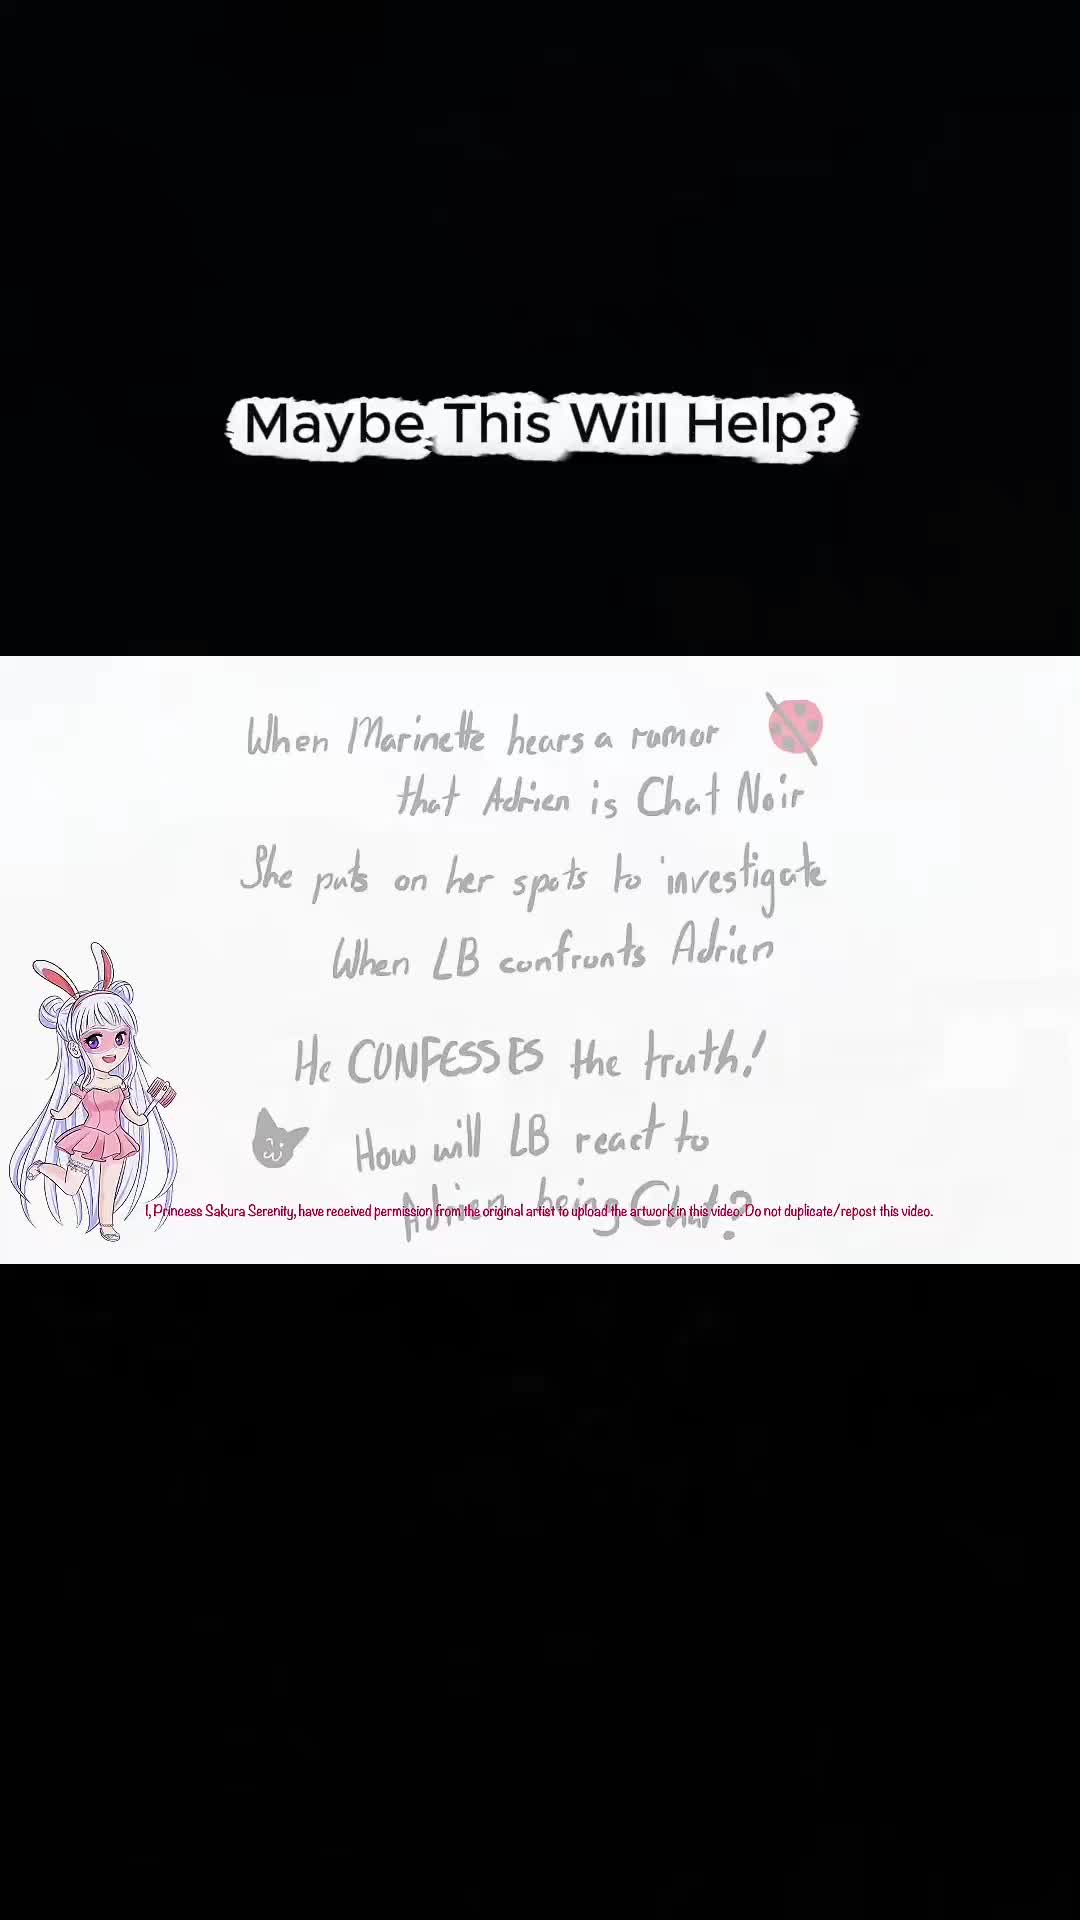 Maybe This Will Help?
When Marinette hears a rumor
that Adrien is Chat Noir
She puts on her spots to investigate
When LB confronts Adrien
He CONFESSES the truth!
How will LB react to
Adrien being Chat?
I, Princess Sakura Serenity, have received permission from the original artist to upload the artwork in this video. Do not duplicate/repost this video.